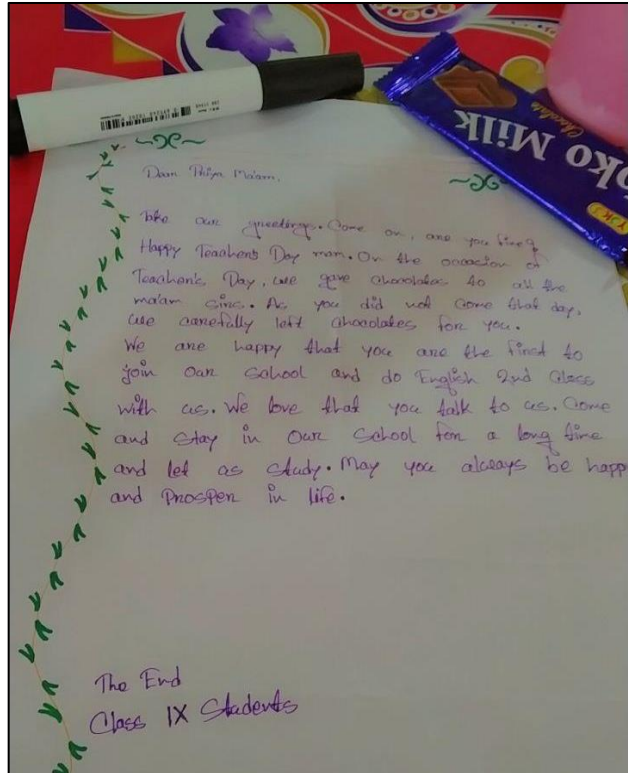 Dear Priya Ma'am,
Take our greetings. Come on, are you fine?
Happy Teacher's Day mam. On the occasion of
Teacher's Day, we gave chocolates to all the
ma'am sirs. As you did not come that day,
we carefully left chocolates for you.
We are happy that you are the first to
join our school and do English 2nd class
with us. We love that you talk to us. Come
and stay in our school for a long time
and let as study. May you always be happ
and prosper in life.
The End
Class IX Students
oko Milk
Chocolate